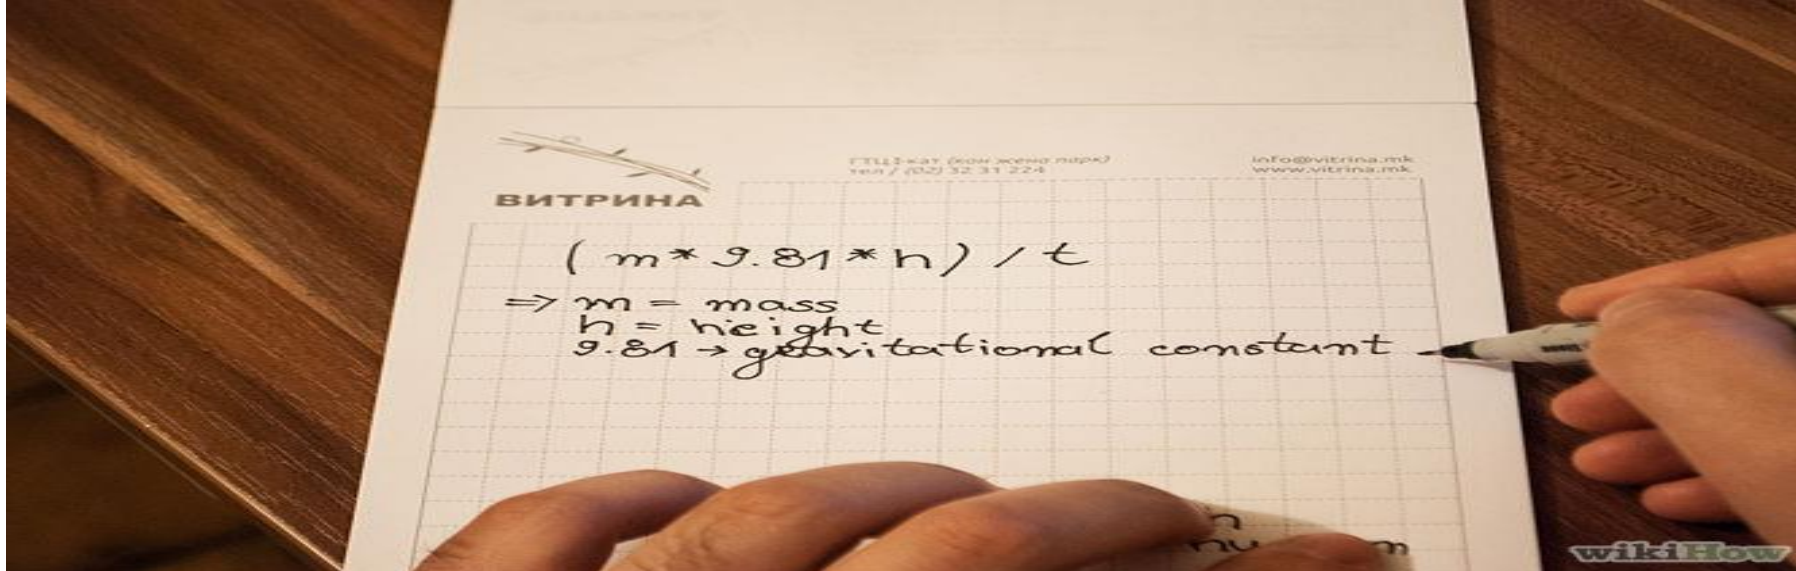 ВИТРИНА
тел / (02) 32 31 224
info@vitrina.mk
www.vitrina.mk
(m*9.81*h) / t
=> m = mass
h = height
9.81 → gravitational constant
wikiHow